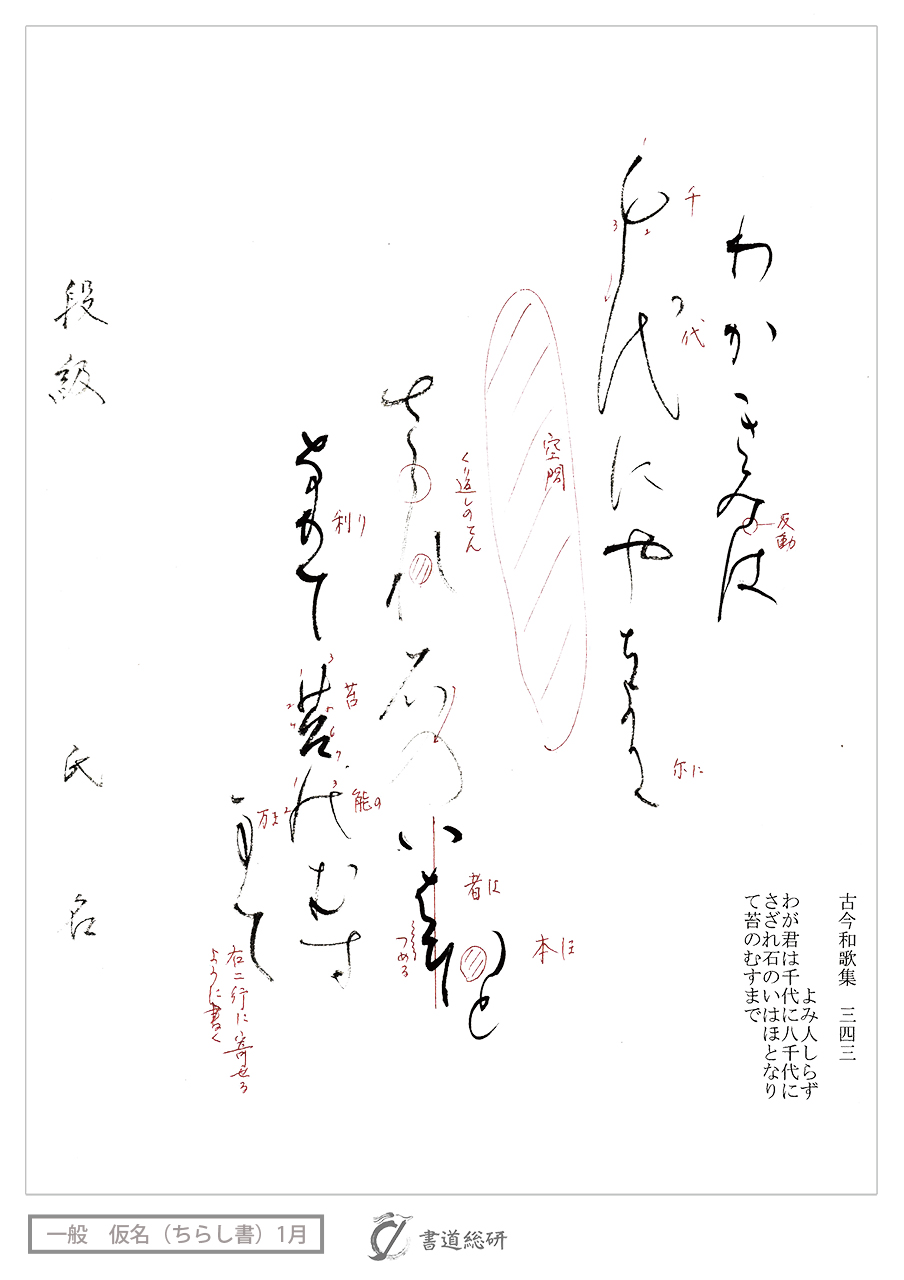 わかきみは
千
千代
代
にやちよ尓
尓に
反動
空間
さゝれ
くり返しのてん
石の
い者
者は
つめる
本と
本ほ
な利て
利り
苔能むす
苔
能の
万て
万ま
右二行に寄せる
ように書く
段級
氏名
古今和歌集 三四三
よみ人しらず
わが君は千代に八千代に
さざれ石のいはほとなり
て苔のむすまで
一般 仮名(ちらし書)1月
書道総研